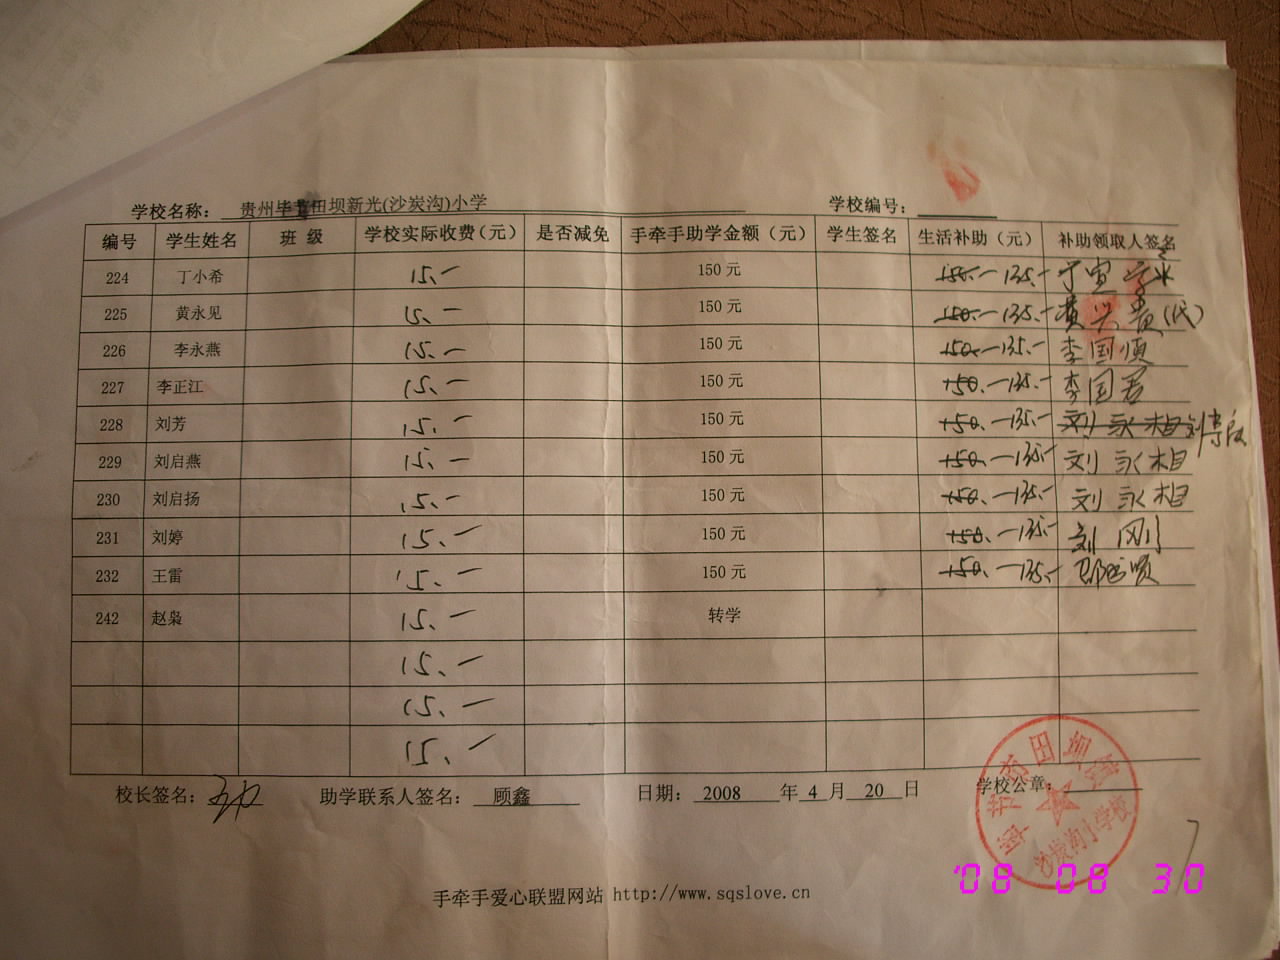 学校名称： 贵州毕节田坝新光(沙炭沟)小学 学校编号：
编号 学生姓名 班 级 学校实际收费（元） 是否减免 手牵手助学金额（元） 学生签名 生活补助（元） 补助领取人签名
224 丁小希 15.— 150 元 150.— 135.—
225 黄永见 15.— 150 元 150.— 135.— 黄兴贵(代)
226 李永燕 15.— 150 元 150.— 135.— 李国顺
227 李正江 15.— 150 元 150.— 135.— 李国君
228 刘芳 15.— 150 元 150.— 135.— 刘永相
229 刘启燕 15.— 150 元 150.— 135.— 刘永相
230 刘启扬 15.— 150 元 150.— 135.— 刘永相
231 刘婷 15.— 150 元 150.— 135.— 刘刚
232 王雷 15.— 150 元 150.— 135.—
242 赵枭 15.— 转学
15.—
15.—
15.—
校长签名： 助学联系人签名： 顾鑫 日期： 2008 年 4 月 20 日 学校公章：
手牵手爱心联盟网站 http://www.sqslove.cn
'08 08 30